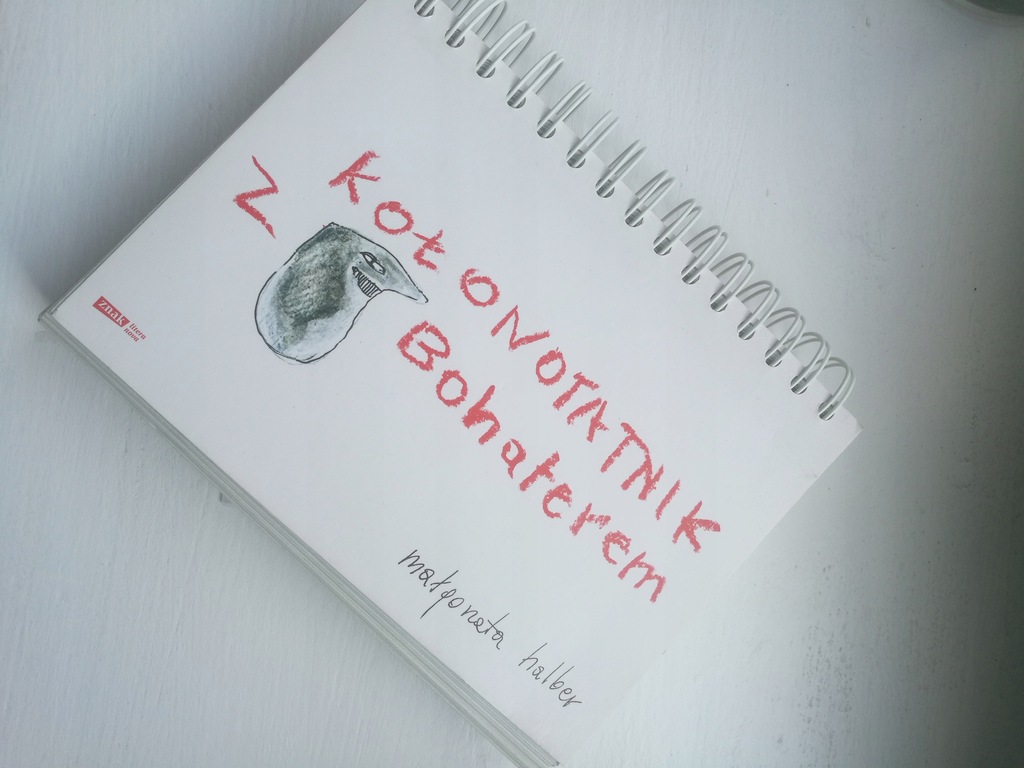 KOŁONOTATNIK
Z Bohaterem
małgorzata halber
znak
litera
nova